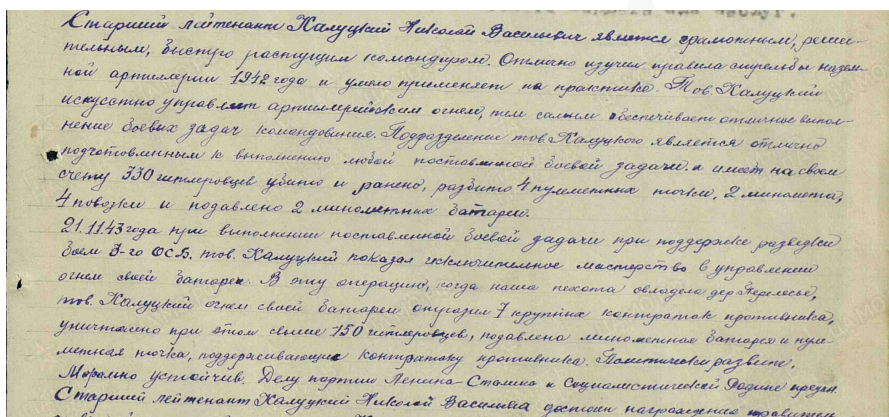 Старший лейтенант Калуцкий Николай Васильевич является грамотным, реши-
тельным, быстро растущим командиром. Отлично изучил правила стрельбы назем-
ной артиллерии 1942 года и умело применяет на практике. Тов. Калуцкий
искусстно управляет артиллерийским огнем, тем самым обеспечивает отличное выпол-
нение боевых задач командования. Подразделение тов. Калуцкого является отлично
подготовленным к выполнению любой поставленной боевой задачи и имеет на своем
счету 330 гитлеровцев убито и ранено, разбито 4 пулеметных точки, 2 миномета,
4 повозки и подавлено 2 минометных батареи.
21.11.43 года при выполнении поставленной боевой задачи при поддержке разведки
боем 3-го ОСБ, тов. Калуцкий показал исключительное мастерство в управлении
огнем своей батареи. В эту операцию, когда наша пехота овладела дер. Жерелосье,
тов. Калуцкий огнем своей батареи 7 крупных контратак противника,
уничтожено при этом свыше 150 гитлеровцев, подавлена минометная батарея и пуле-
метная точка, поддерживающие контратаку противника. Политически развит.
Морально устойчив. Делу партии Ленина-Сталина и Социалистической Родине предан.
Старший лейтенант Калуцкий Николай Васильевич достоин награждения